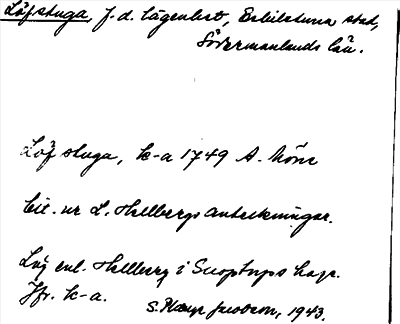 Löfstuga, f.d. lägenhet, Eskilstuna stad,
Södermanlands län.
Löfstuga, k-a 1749 A. Mörn
Cit. ur L. Hellbergs anteckningar.
Låg enl. Hellberg i Snoptorps hage.
Jfr. k-a.
S. Jacobson, 1943.